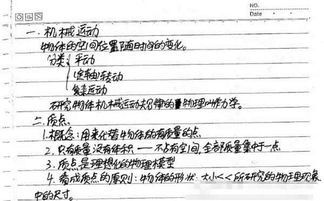 NO.
Date
一. 机械运动
物体的空间位置随时间的变化。
分类: 平动
转动
振动
研究物体机械运动规律的物理叫力学。
二. 质点
1. 概念: 用来代替物体的有质量的点
2. 只有质量没有体积——不占有空间, 全部质量集于一点
3. 质点是理想化的物理模型
4. 看成质点的原则: 物体的形状、大小<<所研究的物理现象
中的尺寸。